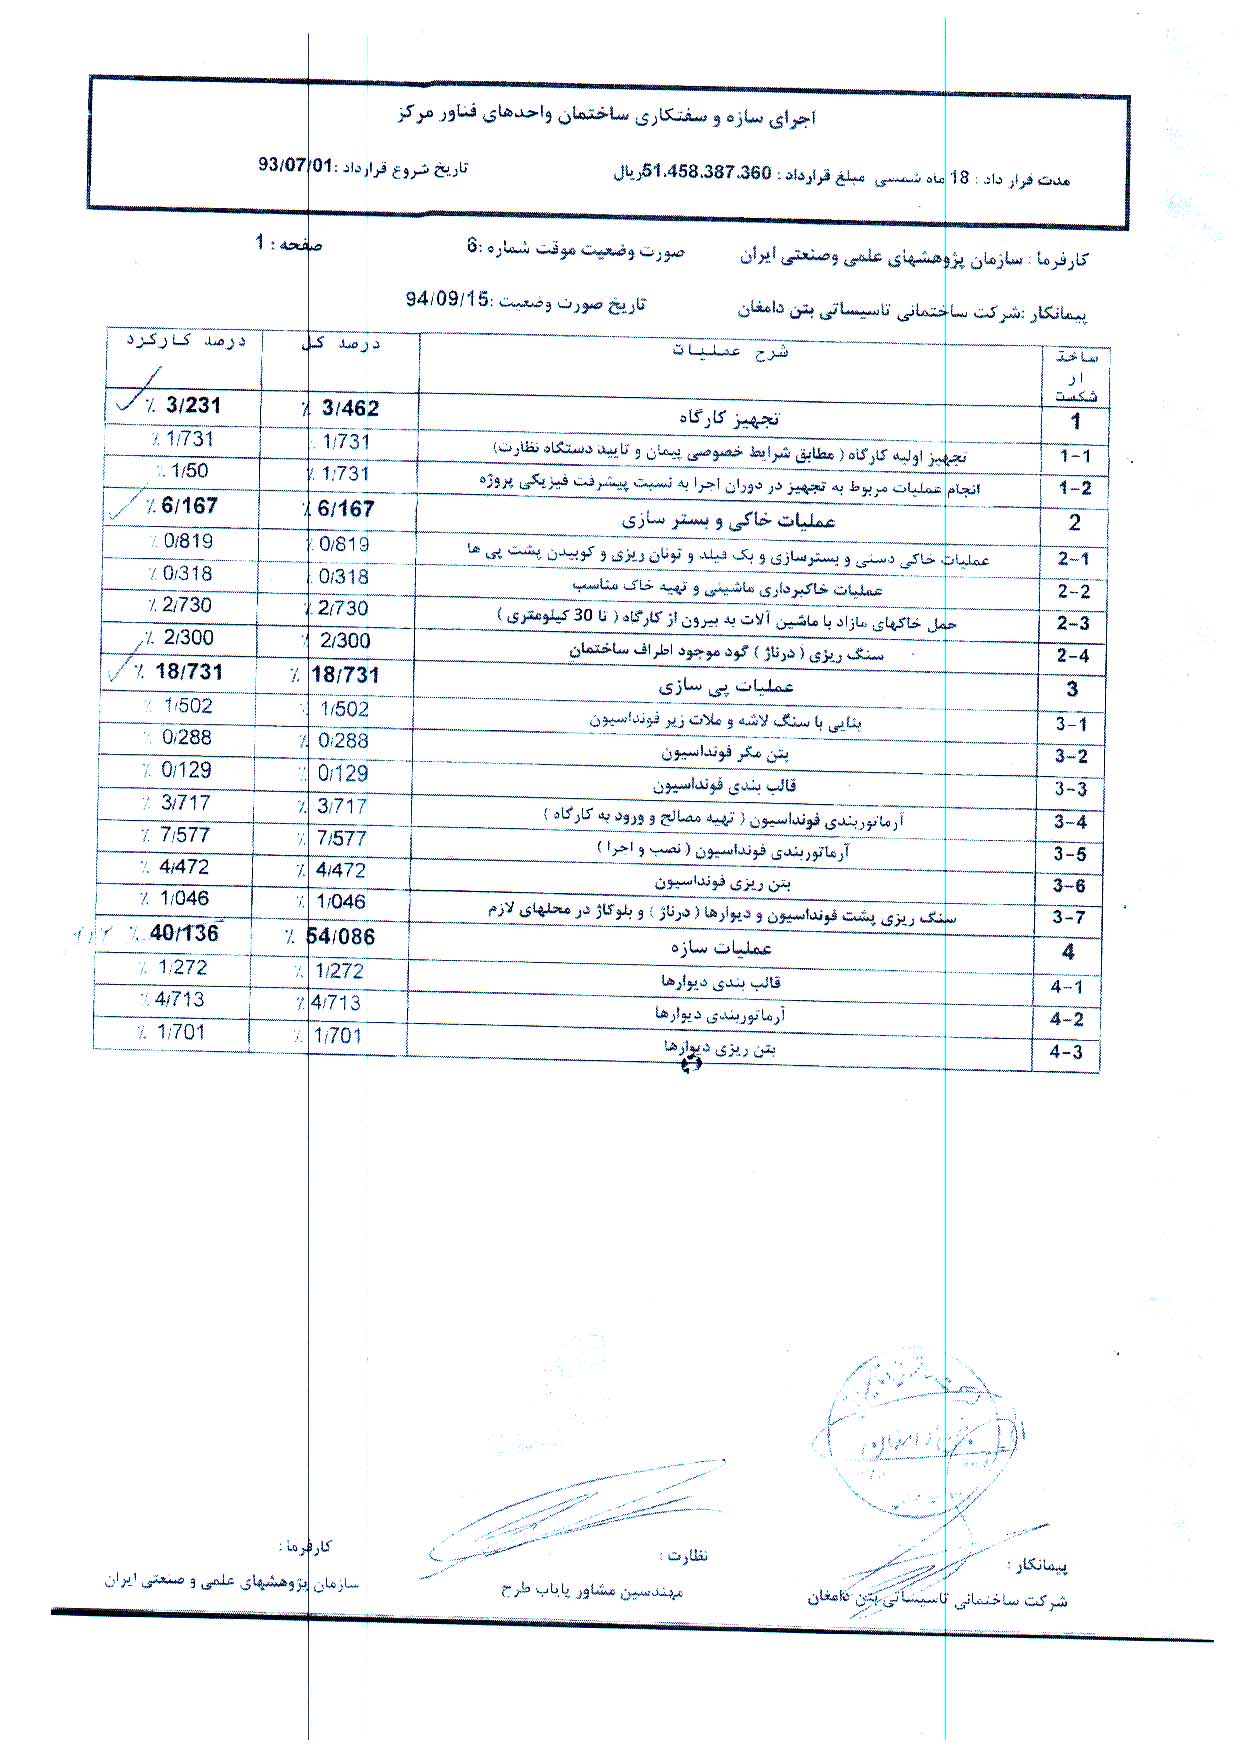 اجرای سازه و سفتکاری ساختمان واحدهای فناور مرکز
مدت قرار داد : 18 ماه شمسی مبلغ قرارداد : 51.458.387.360ریال تاریخ شروع قرارداد :93/07/01
کارفرما : سازمان پژوهشهای علمی وصنعتی ایران صورت وضعیت موقت شماره :6 صفحه : 1
پیمانکار :شرکت ساختمانی تاسیساتی بتن دامغان تاریخ صورت وضعیت :94/09/15
ساختار شکست شرح عملیات درصد کل درصد کارکرد
1 تجهیز کارگاه 3/462 ٪ 3/231 ٪
1-1 تجهیز اولیه کارگاه ( مطابق شرایط خصوصی پیمان و تایید دستگاه نظارت) 1/731 ٪ 1/731 ٪
1-2 انجام عملیات مربوط به تجهیز در دوران اجرا به نسبت پیشرفت فیزیکی پروژه 1/731 ٪ 1/50 ٪
2 عملیات خاکی و بستر سازی 6/167 ٪ 6/167 ٪
2-1 عملیات خاکی دستی و بسترسازی و بک فیلد و تونان ریزی و کوبیدن پشت پی ها 0/819 ٪ 0/819 ٪
2-2 عملیات خاکبرداری ماشینی و تهیه خاک مناسب 0/318 ٪ 0/318 ٪
2-3 حمل خاکهای مازاد با ماشین آلات به بیرون از کارگاه ( تا 30 کیلومتری ) 2/730 ٪ 2/730 ٪
2-4 سنگ ریزی ( درناژ ) گود موجود اطراف ساختمان 2/300 ٪ 2/300 ٪
3 عملیات پی سازی 18/731 ٪ 18/731 ٪
3-1 بنایی با سنگ لاشه و ملات زیر فونداسیون 1/502 ٪ 1/502 ٪
3-2 بتن مگر فونداسیون 0/288 ٪ 0/288 ٪
3-3 قالب بندی فونداسیون 0/129 ٪ 0/129 ٪
3-4 آرماتوربندی فونداسیون ( تهیه مصالح و ورود به کارگاه ) 3/717 ٪ 3/717 ٪
3-5 آرماتوربندی فونداسیون ( نصب و اجرا ) 7/577 ٪ 7/577 ٪
3-6 بتن ریزی فونداسیون 4/472 ٪ 4/472 ٪
3-7 سنگ ریزی پشت فونداسیون و دیوارها ( درناژ ) و بلوکاژ در محلهای لازم 1/046 ٪ 1/046 ٪
4 عملیات سازه 54/086 ٪ 40/136 ٪
4-1 قالب بندی دیوارها 1/272 ٪ 1/272 ٪
4-2 آرماتوربندی دیوارها 4/713 ٪ 4/713 ٪
4-3 بتن ریزی دیوارها 1/701 ٪ 1/701 ٪
پیمانکار : نظارت : کارفرما :
شرکت ساختمانی تاسیساتی بتن دامغان مهندسین مشاور پاباب طرح سازمان پژوهشهای علمی و صنعتی ایران